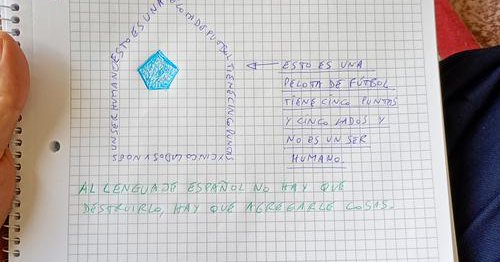 ESTO ES UNA PELOTA DE FUTBOL TIENE CINCO PUNTAS Y CINCO LADOS Y NO ES UN SER HUMANO
ESTO ES UNA
PELOTA DE FÚTBOL
TIENE CINCO PUNTAS
Y CINCO LADOS Y
NO ES UN SER
HUMANO.
AL LENGUAJE ESPAÑOL NO HAY QUE
DESTRUIRLO, HAY QUE AGREGARLE COSAS.